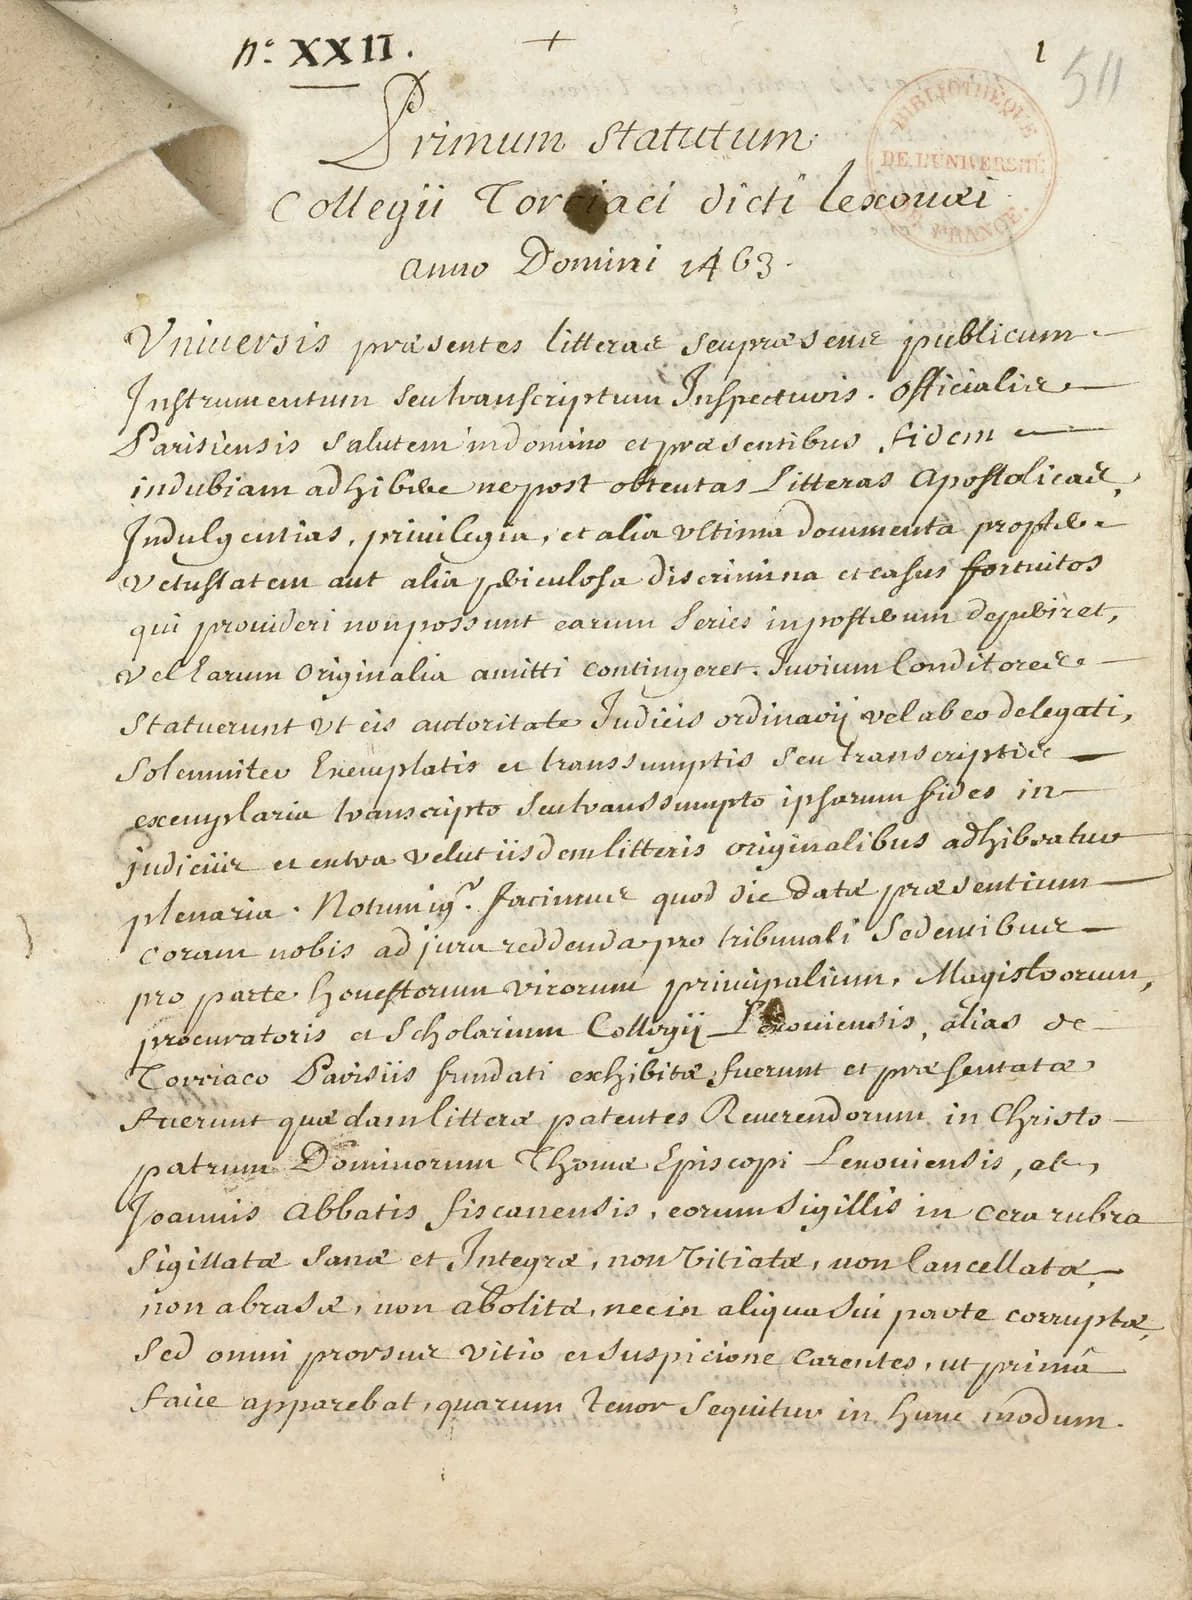 n.° XXII.
+
1
511
BIBLIOTHÈQUE
DE L'UNIVERSITÉ
DE FRANCE.
Primum statutum
Collegii Torciaci dicti lexouæi
anno Domini 1463.
Vniuersis præsentes litteras seu præsens publicum
Instrumentum seu transcriptum Inspecturis. Officialis
Parisiensis salutem in domino et præsentibus fidem
indubiam adhibere ne post obtentas Litteras Apostolicas,
Indulgentias, priuilegia, et alia vltima documenta propter
vetustatem aut alia periculosa discrimina et casus fortuitos
qui prouideri non possunt earum series in posterum deperiret,
vel earum originalia amitti contingeret. Jurium Conditores
statuerunt vt eis autoritate Judicis ordinarij vel ab eo delegati,
solemniter Exemplatis et transsumptis seu transcriptis
exemplaria transcripto seu transsumpto ipsarum fides in
judiciis et extra velut iisdem litteris originalibus adhibeatur
plenaria. Notum ig.r facimus quod die datæ præsentium
coram nobis ad jura reddenda pro tribunali sedentibus
pro parte honestorum virorum principalium, Magistrorum,
procuratoris et scholarium Collegij Lexouiensis, alias de
Torciaco Parisiis fundati exhibitæ fuerunt et præsentatæ
fuerunt quædam litteræ patentes Reuerendorum in Christo
patrum Dominorum Thomæ Episcopi Lexouiensis, et
Joannis Abbatis fiscanensis, eorum sigillis in cera rubra
sigillatæ sanæ et Integræ, non vitiatæ, non cancellatæ,
non abrasæ, non abolitæ, nec in aliqua sui parte corruptæ,
sed omni prorsus vitio et suspicione carentes, ut primâ
facie apparebat, quarum tenor sequitur in hunc modum.